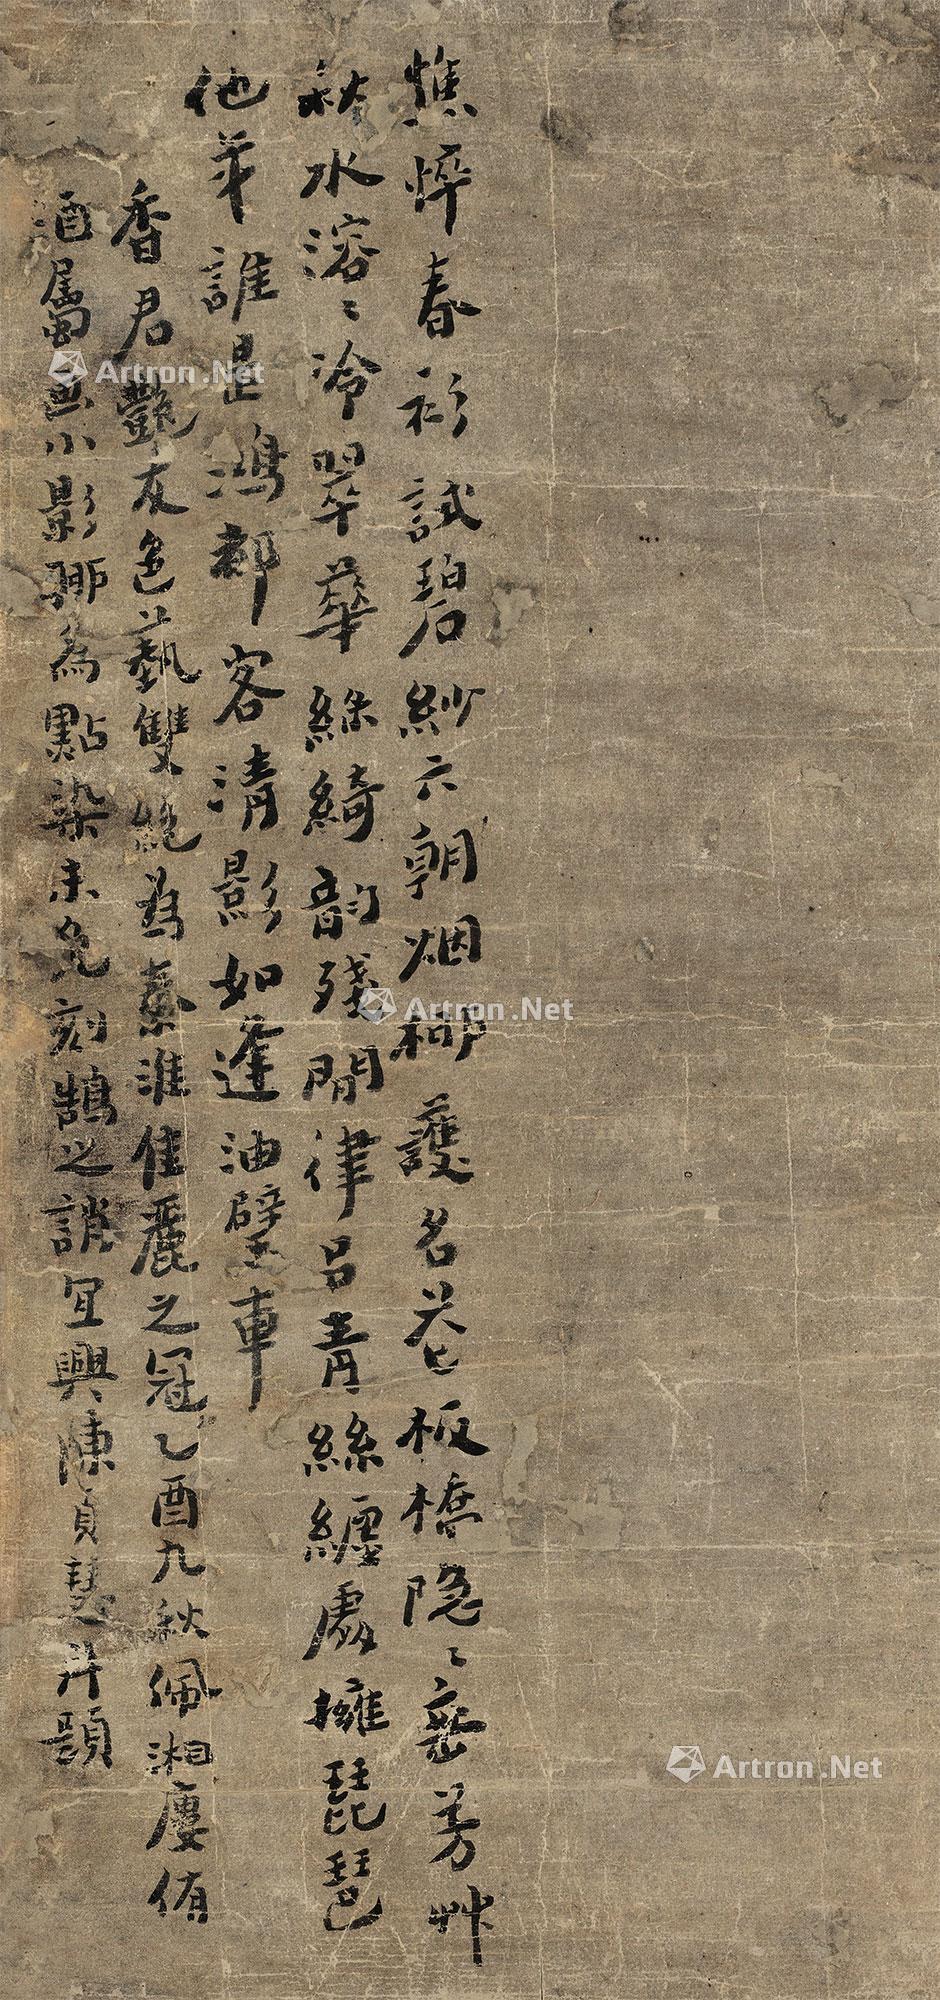 憔悴春衫試碧紗六朝烟柳護名花板橋隐〻密芳艸
秋水溶〻冷翠華絲綺韵殘閒律吕青絲纏處擁琵琶
他年誰是鴻都客清影如逢油壁車
香君艷友色藝雙絶為秦淮佳麗之冠乙酉九秋佩湘廔侑
酒屬画小影聊為點染未免刻鵠之誚宜興陳貞慧并題
Artron.Net
Artron.Net
Artron.Net